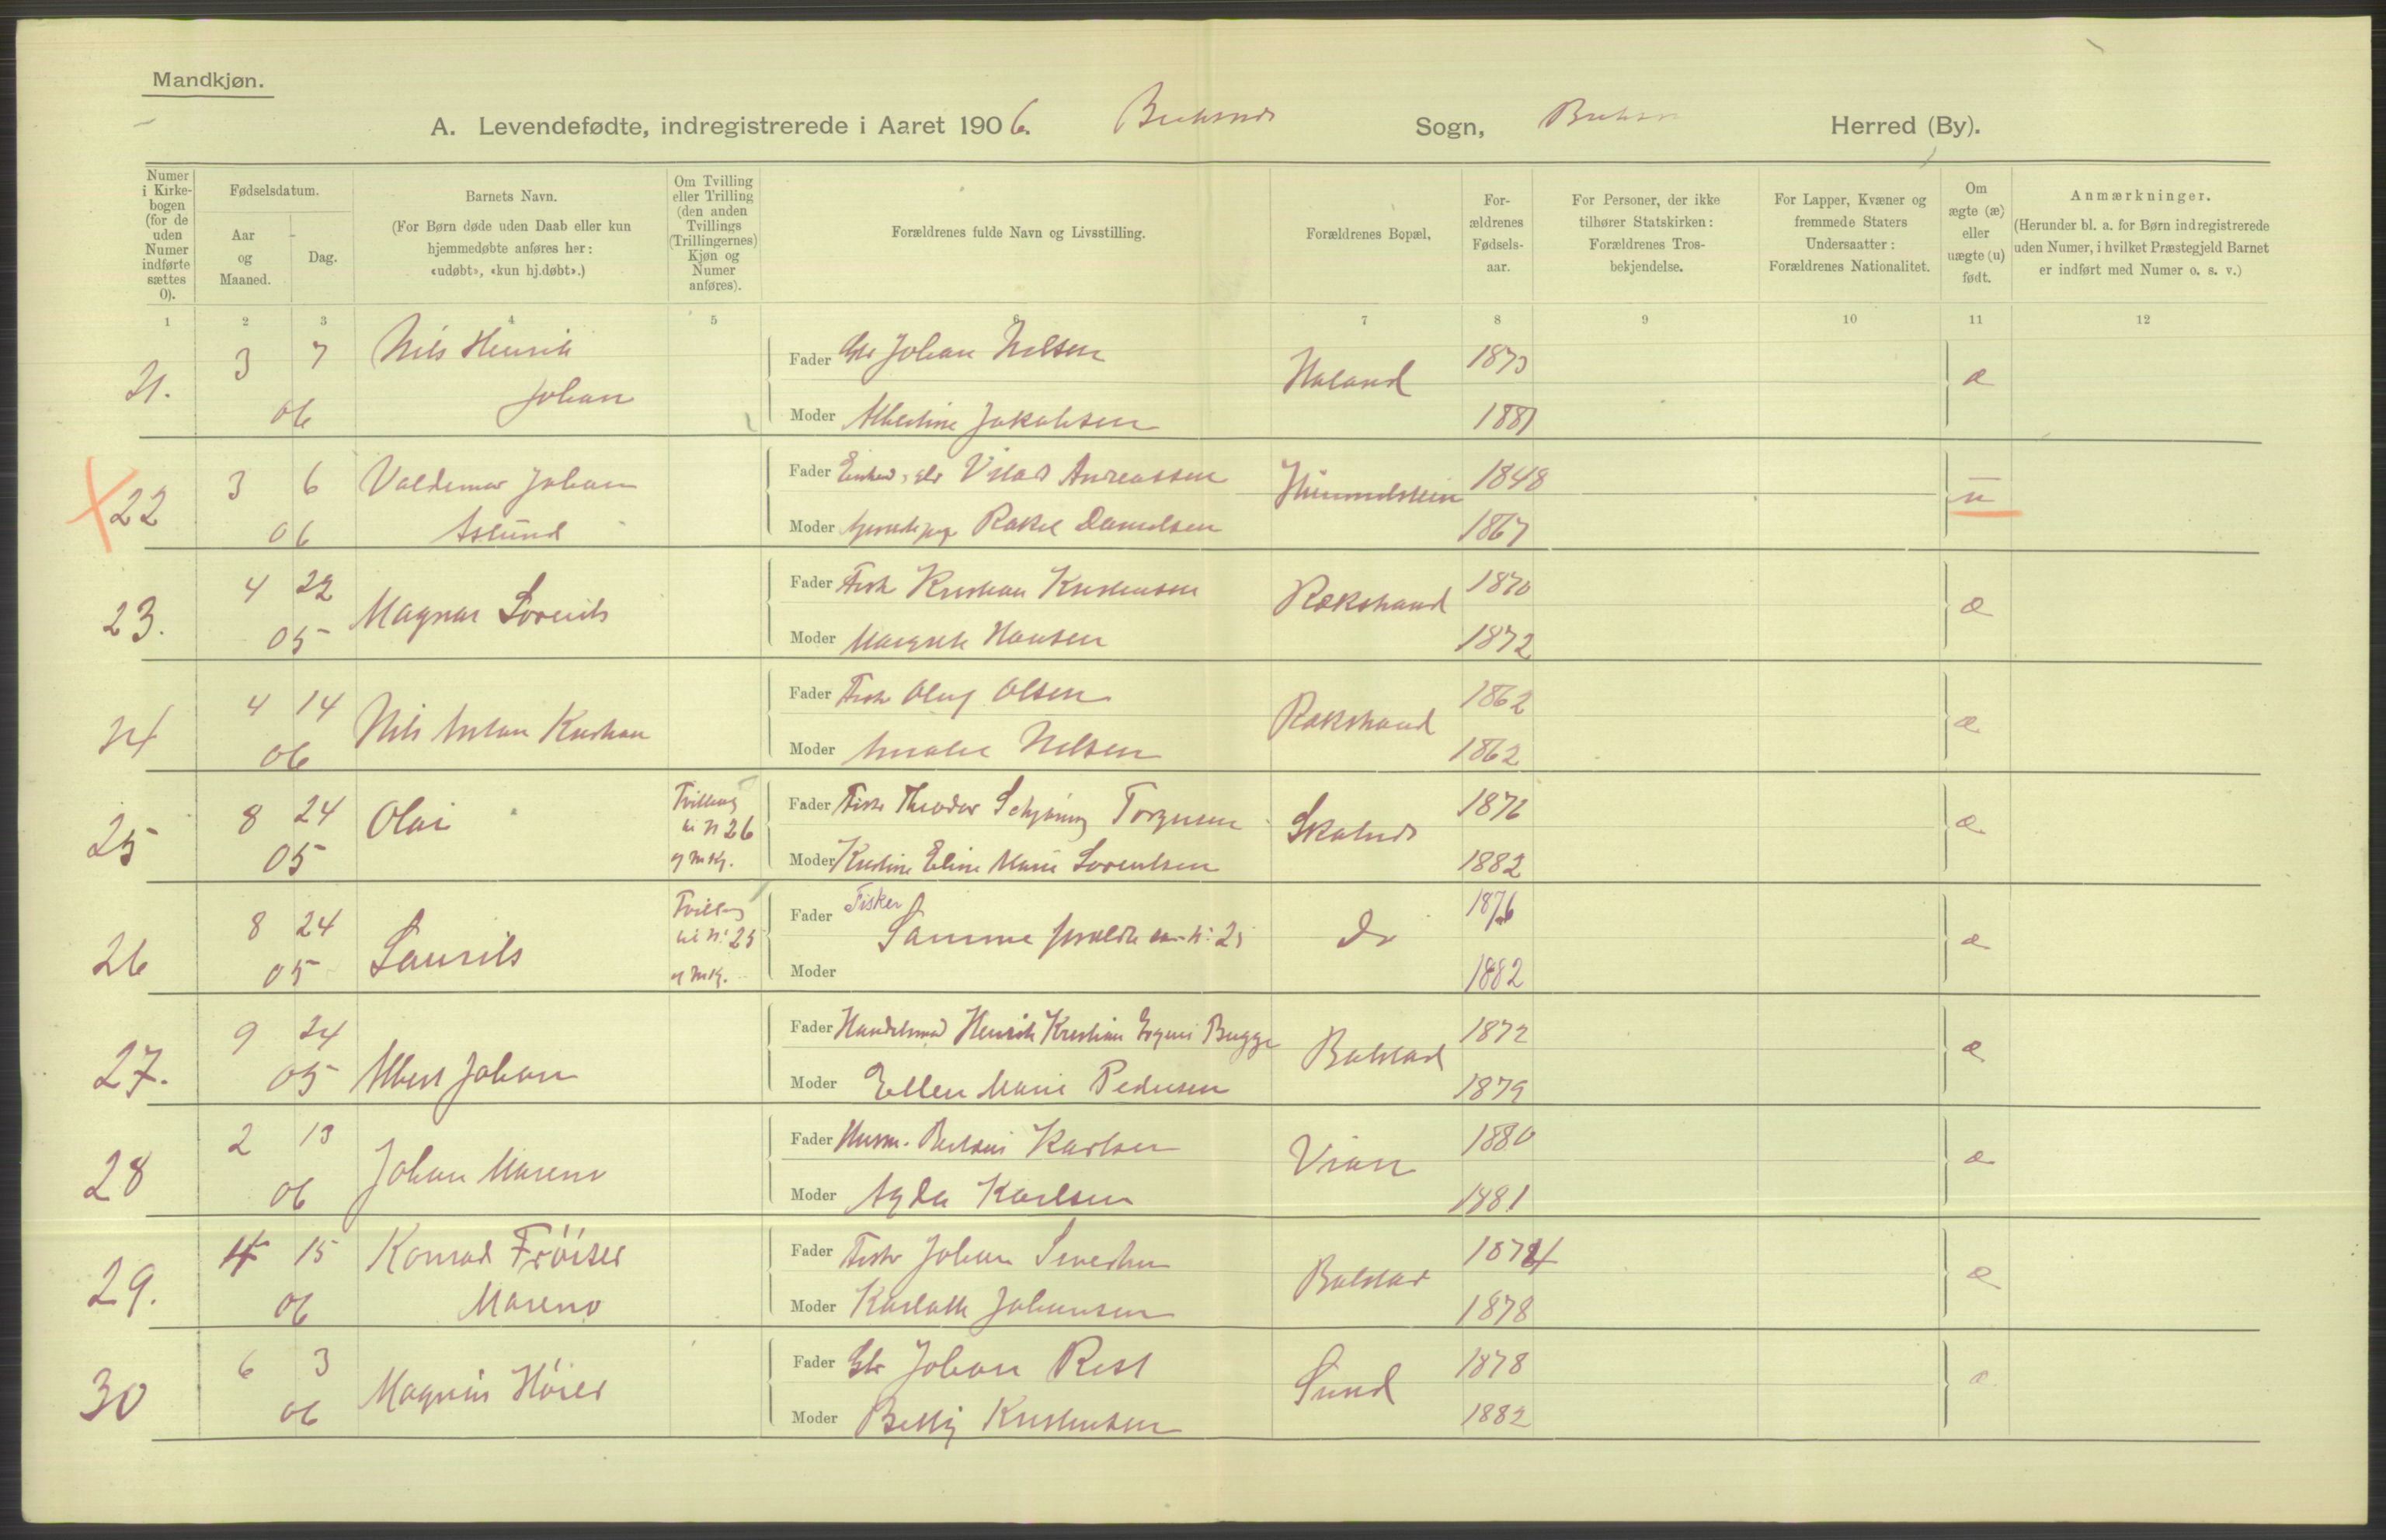 Mandkjøn.
A. Levendefødte, indregistrerede i Aaret 1906. Buksnes Sogn, Buksn Herred (By).
Numer i Kirkebogen (for de uden Numer indførte sættes 0).
Fødselsdatum.
Aar og Maaned.
Dag.
Barnets Navn.
(For Børn døde uden Daab eller kun hjemmedøbte anføres her: «udøbt», «kun hj.døbt».)
Om Tvilling eller Trilling (den anden Tvillings (Trillingernes) Kjøn og Numer anføres).
Forældrenes fulde Navn og Livsstilling.
Forældrenes Bopæl,
Forældrenes Fødselsaar.
For Personer, der ikke tilhører Statskirken: Forældrenes Trosbekjendelse.
For Lapper, Kvæner og fremmede Staters Undersaatter: Forældrenes Nationalitet.
Om ægte (æ) eller uægte (u) født.
Anmærkninger.
(Herunder bl. a. for Børn indregistrerede uden Numer, i hvilket Præstegjeld Barnet er indført med Numer o. s. v.)
1 2 3 4 5 6 7 8 9 10 11 12
21. 3 7 Nils Henrik Fader Johan Nilsen Haland 1873 æ
06 Johan Moder Albertine Jakobsen 1881
22 3 6 Valdemar Johan Fader Andreassen Himmelstein 1848 u
06 Aslund Moder Rakel Danielsen 1867
23. 4 22 Magnar Lorents Fader Fisk Kristian Kristensen Rækstrand 1870 æ
05 Moder Margrete Hansen 1872
24 4 14 Nils Anton Kristian Fader Fisk Oluf Olsen Rækstrand 1862 æ
06 Moder Amalie Nilsen 1862
25 8 24 Olai Tvilling til N 26 og Mkj. Fader Fisk Theodor Schjøning Torgersen Skotnes 1876 æ
05 Moder Kristine Eline Marie Lorentsen 1882
26 8 24 Laurits Tvilling til N: 25 og Mkj. Fader Fisker Samme forældre som N: 25 do 1876 æ
05 Moder 1882
27. 9 24 Albert Johan Fader Handelsmd Henrik Kristian Bugge Balstad 1872 æ
05 Moder Ellen Marie Pedersen 1879
28 2 13 Johan Mareno Fader Husm. Karlsen Vian 1880 æ
06 Moder Agda Karlsen 1881
29. 4 15 Konrad Fröiser Fader Fisk Johan Severin Balstad 1874 æ
06 Mareno Moder Karlotte Johansen 1878
30 6 3 Magnus Fader Johan Rist Sund 1878 æ
06 Moder Betty Kristensen 1882